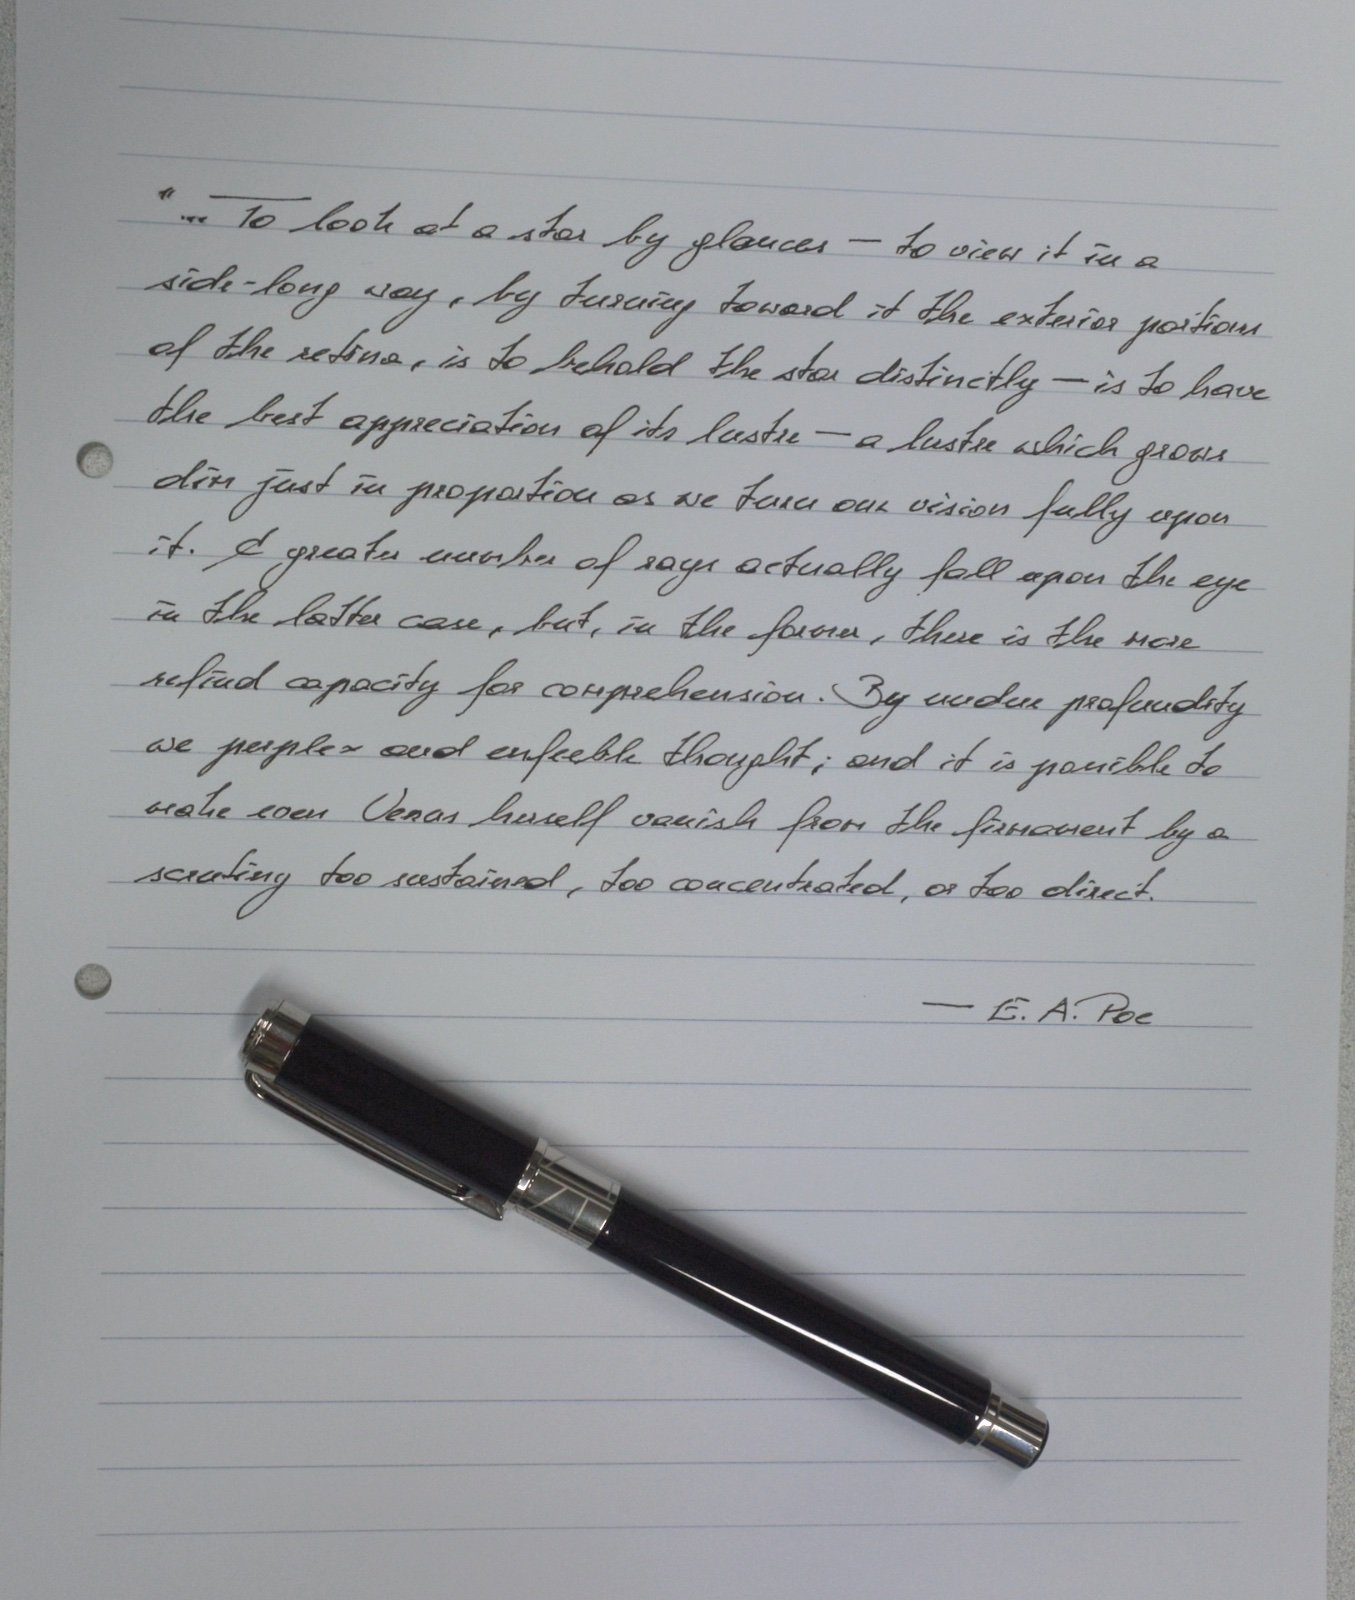 "... To look at a star by glances — to view it in a
side-long way, by turning toward it the exterior portions
of the retina, is to behold the star distinctly — is to have
the best appreciation of its lustre — a lustre which grows
dim just in proportion as we turn our vision fully upon
it. A greater number of rays actually fall upon the eye
in the latter case, but, in the former, there is the more
refined capacity for comprehension. By undue profundity
we perplex and enfeeble thought; and it is possible to
make even Venus herself vanish from the firmament by a
scrutiny too sustained, too concentrated, or too direct.
— E. A. Poe